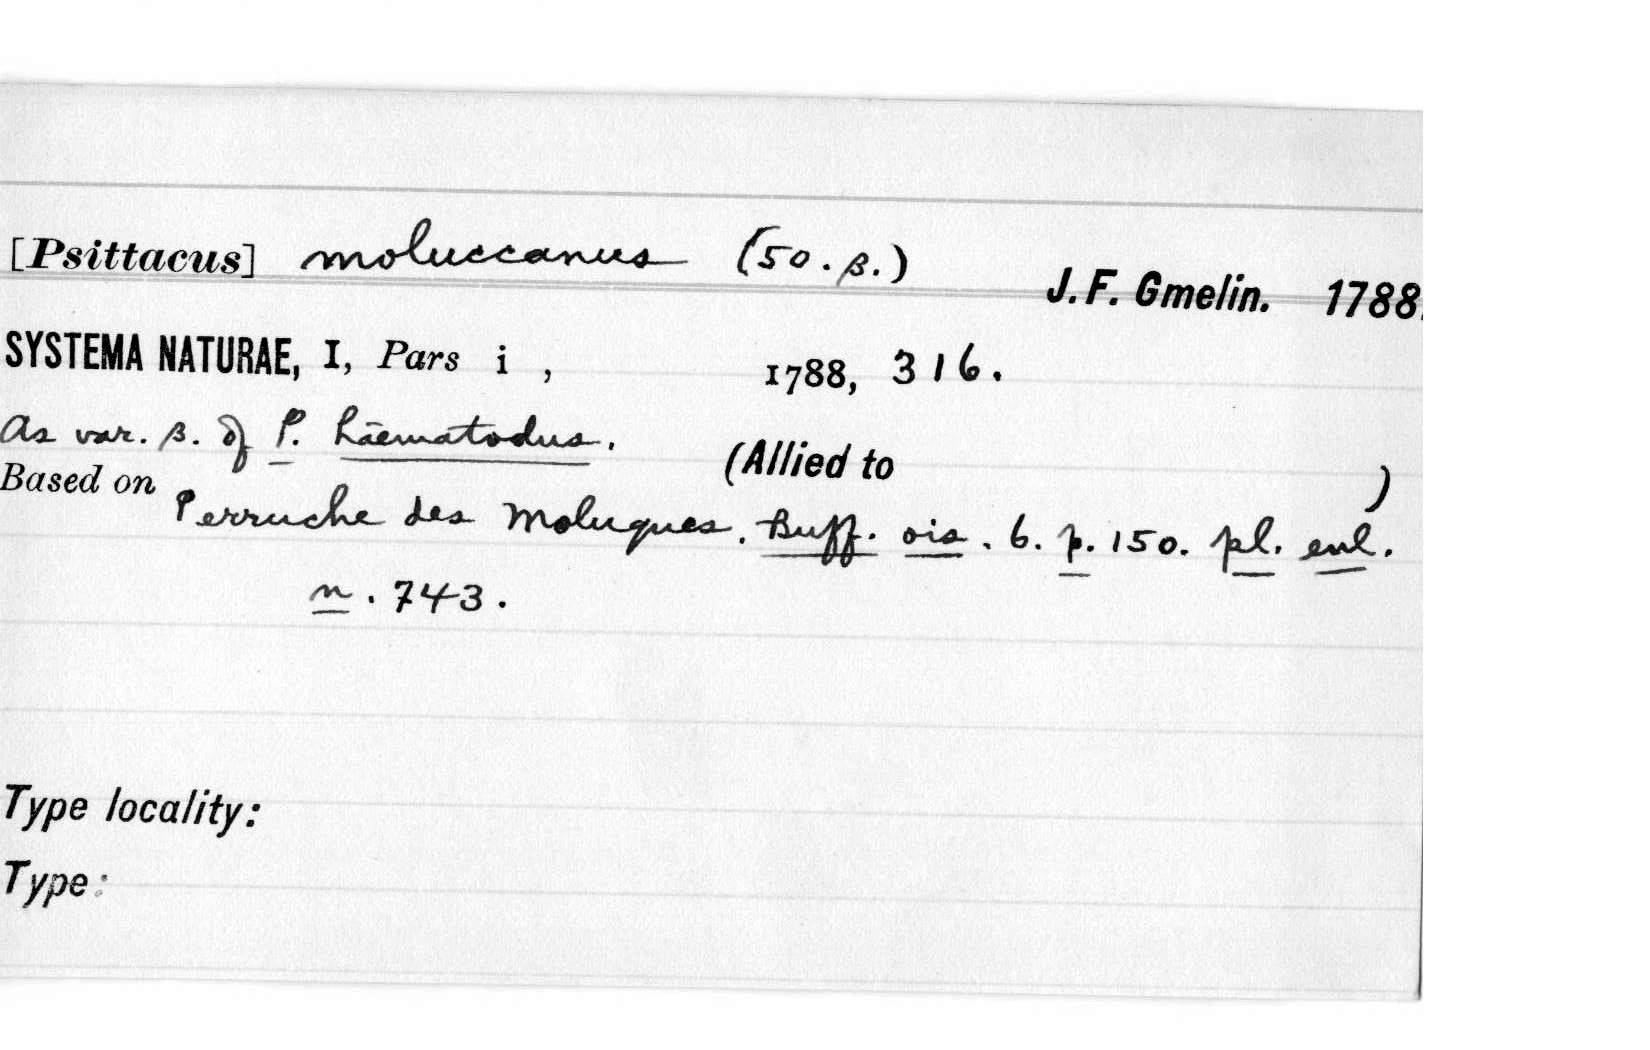 [Psittacus] moluccanus (50.β.)
J. F. Gmelin. 1788.
SYSTEMA NATURAE, I, Pars i, 1788, 316.
As var. β. of P. hæmatodus.
(Allied to )
Based on Perruche des Moluques. Buff. ois. 6. p. 150. pl. enl.
n. 743.
Type locality:
Type: